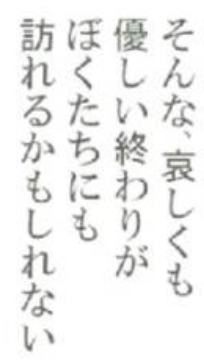 そんな、哀しくも
優しい終わりが
ぼくたちにも
訪れるかもしれない